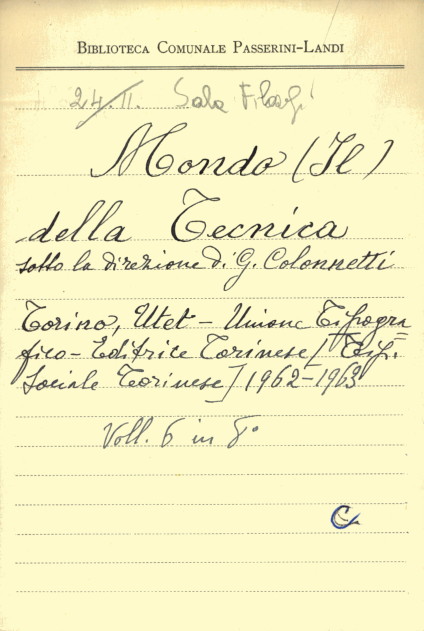 BIBLIOTECA COMUNALE PASSERINI-LANDI
24/II. Sala Filosofi
Mondo (Il)
della Tecnica
sotto la direzione di G. Colonnetti
Torino, Utet - Unione Tipogra=
fico - Editrice Torinese [Tip.
Sociale Torinese] 1962-1963
Voll. 6 in 8°
C